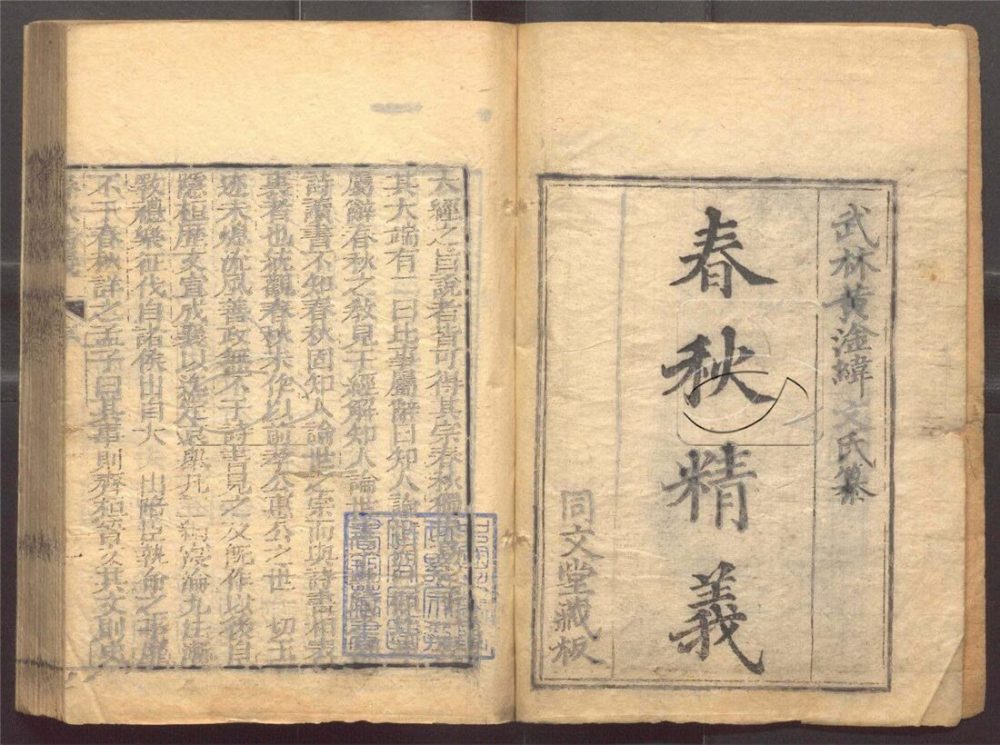 武林黃淦緯文氏纂
春秋精義
同文堂藏板
六經之旨說者皆可得其宗春秋獨
其大端有二曰比事屬辭曰知人論
屬辭春秋之敎見于經解知人論世
詩讀書不知春秋固知人論世之宗而與詩書相表
裏者也統觀春秋未作以前孝公惠公之世一切王
迹未熄流風善政無不于詩書見之及旣作以後自
隱桓歷文宣成襄以定哀
禮樂征伐自諸侯出自大夫出陪臣執命之事靡
不于春秋詳之孟子曰其事則齊桓晉文其文則史